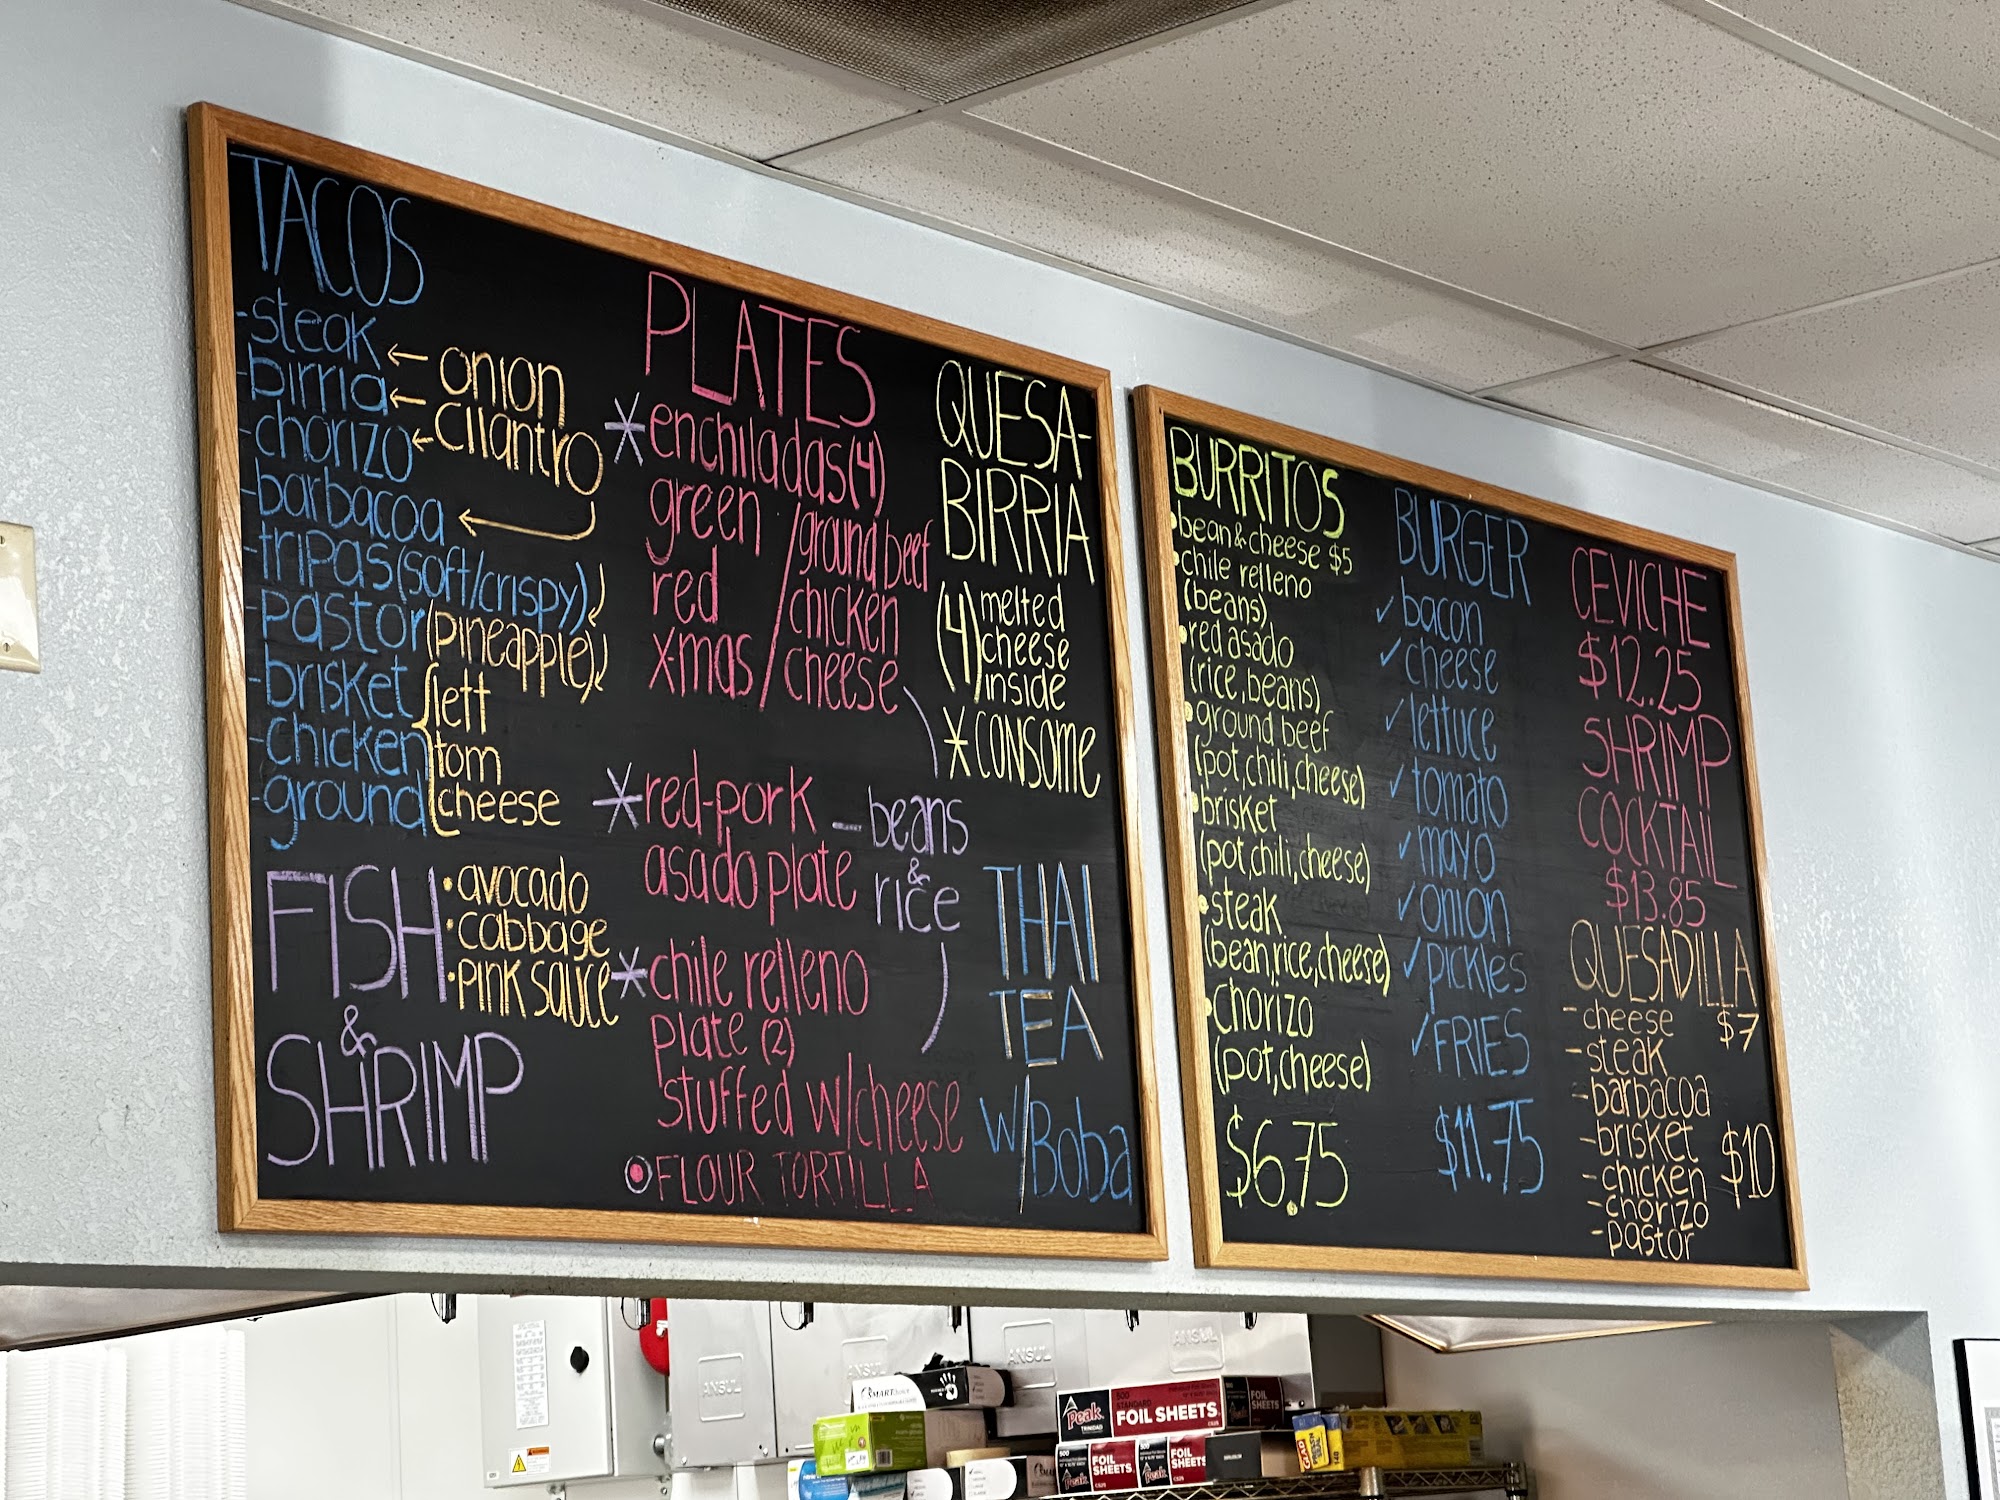 TACOS
-steak
-birria
-chorizo
-barbacoa
-tripas (soft/crispy)
-pastor (pineapple)
-brisket
-chicken
-ground
← onion
← cilantro
lett
tom
cheese
FISH
&
SHRIMP
•avocado
•cabbage
•pink sauce
PLATES
*enchiladas (4)
green
red
x-mas
/ground beef
/chicken
/cheese
*red-pork
asado plate
- beans
&
rice
*chile relleno
plate (2)
stuffed w/cheese
FLOUR TORTILLA
QUESA-
BIRRIA
(4) melted
cheese
inside
*CONSOME
THAI
TEA
w/Boba
BURRITOS
•bean & cheese $5
•chile relleno
(beans)
•red asado
(rice, beans)
•ground beef
(pot, chili, cheese)
•brisket
(pot, chili, cheese)
•steak
(bean, rice, cheese)
•chorizo
(pot, cheese)
$6.75
BURGER
✓bacon
✓cheese
✓lettuce
✓tomato
✓mayo
✓onion
✓pickles
✓FRIES
$11.75
CEVICHE
$12.25
SHRIMP
COCKTAIL
$13.85
QUESADILLA
-cheese $7
-steak
-barbacoa
-brisket $10
-chicken
-chorizo
-pastor
ANSUL
ANSUL
ANSUL
ANSUL
SMART
500
Peak
TRINIDAD
STANDARD
FOIL SHEETS
FOIL
SHEETS
500
Peak
FOIL
SHEETS
500
Peak
FOIL
SHEETS
GLAD